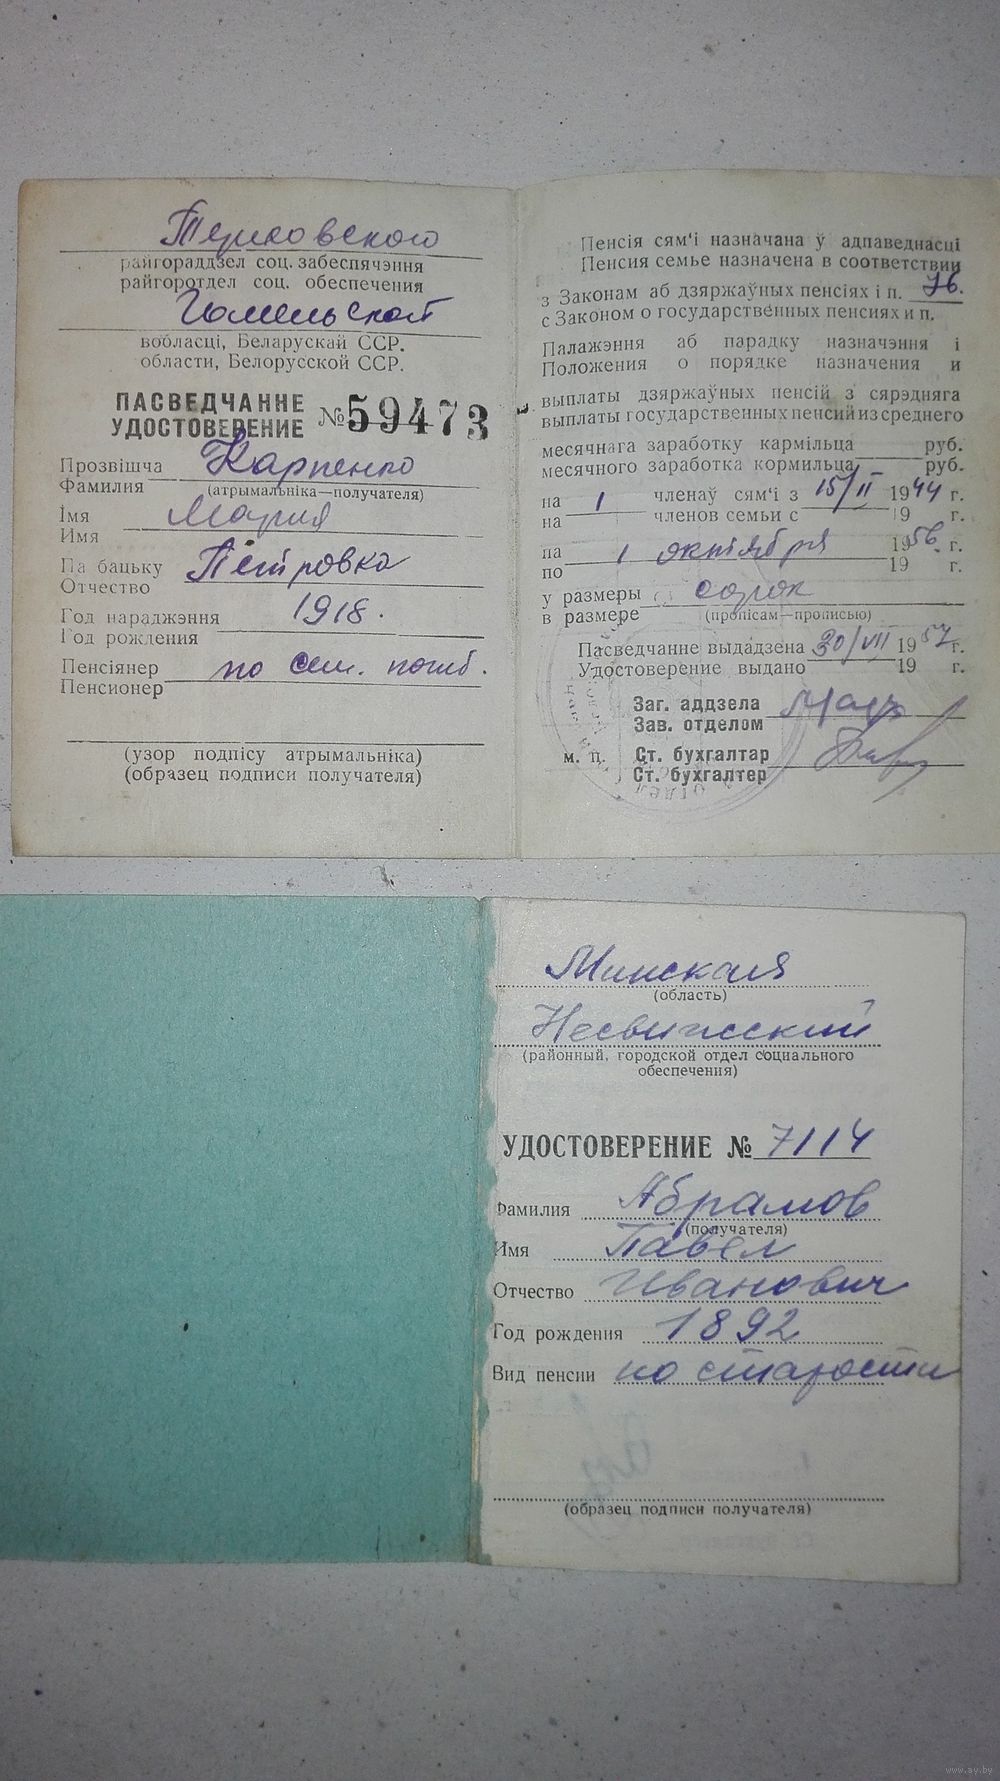 Тереховского
райгораддзел соц. забеспячэння
райгоротдел соц. обеспечения
Гомельской
вобласці, Беларускай ССР.
области, Белорусской ССР.
ПАСВЕДЧАННЕ
УДОСТОВЕРЕНИЕ № 59473
Прозвішча Карпенко
Фамилия (атрымальніка—получателя)
Імя Мария
Имя
Па бацьку Петровна
Отчество
Год нараджэння 1918.
Год рождения
Пенсіянер по сем. погиб.
Пенсионер
(узор подпісу атрымальніка)
(образец подписи получателя)
Пенсія сям'і назначана ў адпаведнасці
Пенсия семье назначена в соответствии
з Законам аб дзяржаўных пенсіях і п. 76.
с Законом о государственных пенсиях и п.
Палажэння аб парадку назначэння і
Положения о порядке назначения и
выплаты дзяржаўных пенсій з сярэдняга
выплаты государственных пенсий из среднего
месячнага заработку кармільца руб.
месячного заработка кормильца руб.
на 1 членаў сям'і з 15/II 1944 г.
на членов семьи с 19 г.
па 1 октября 1956. г.
по 19 г.
у размеры сорок
в размере (пропісам—прописью)
Пасведчанне выдадзена 30/VII 1957 г.
Удостоверение выдано 19 г.
Заг. аддзела
Зав. отделом
м. п. Ст. бухгалтар
Ст. бухгалтер
Минская
(область)
Несвижский
(районный, городской отдел социального
обеспечения)
УДОСТОВЕРЕНИЕ № 7114
Фамилия Абрамов
(получателя)
Имя Павел
Отчество Иванович
Год рождения 1892
Вид пенсии по старости
(образец подписи получателя)
www.ay.by